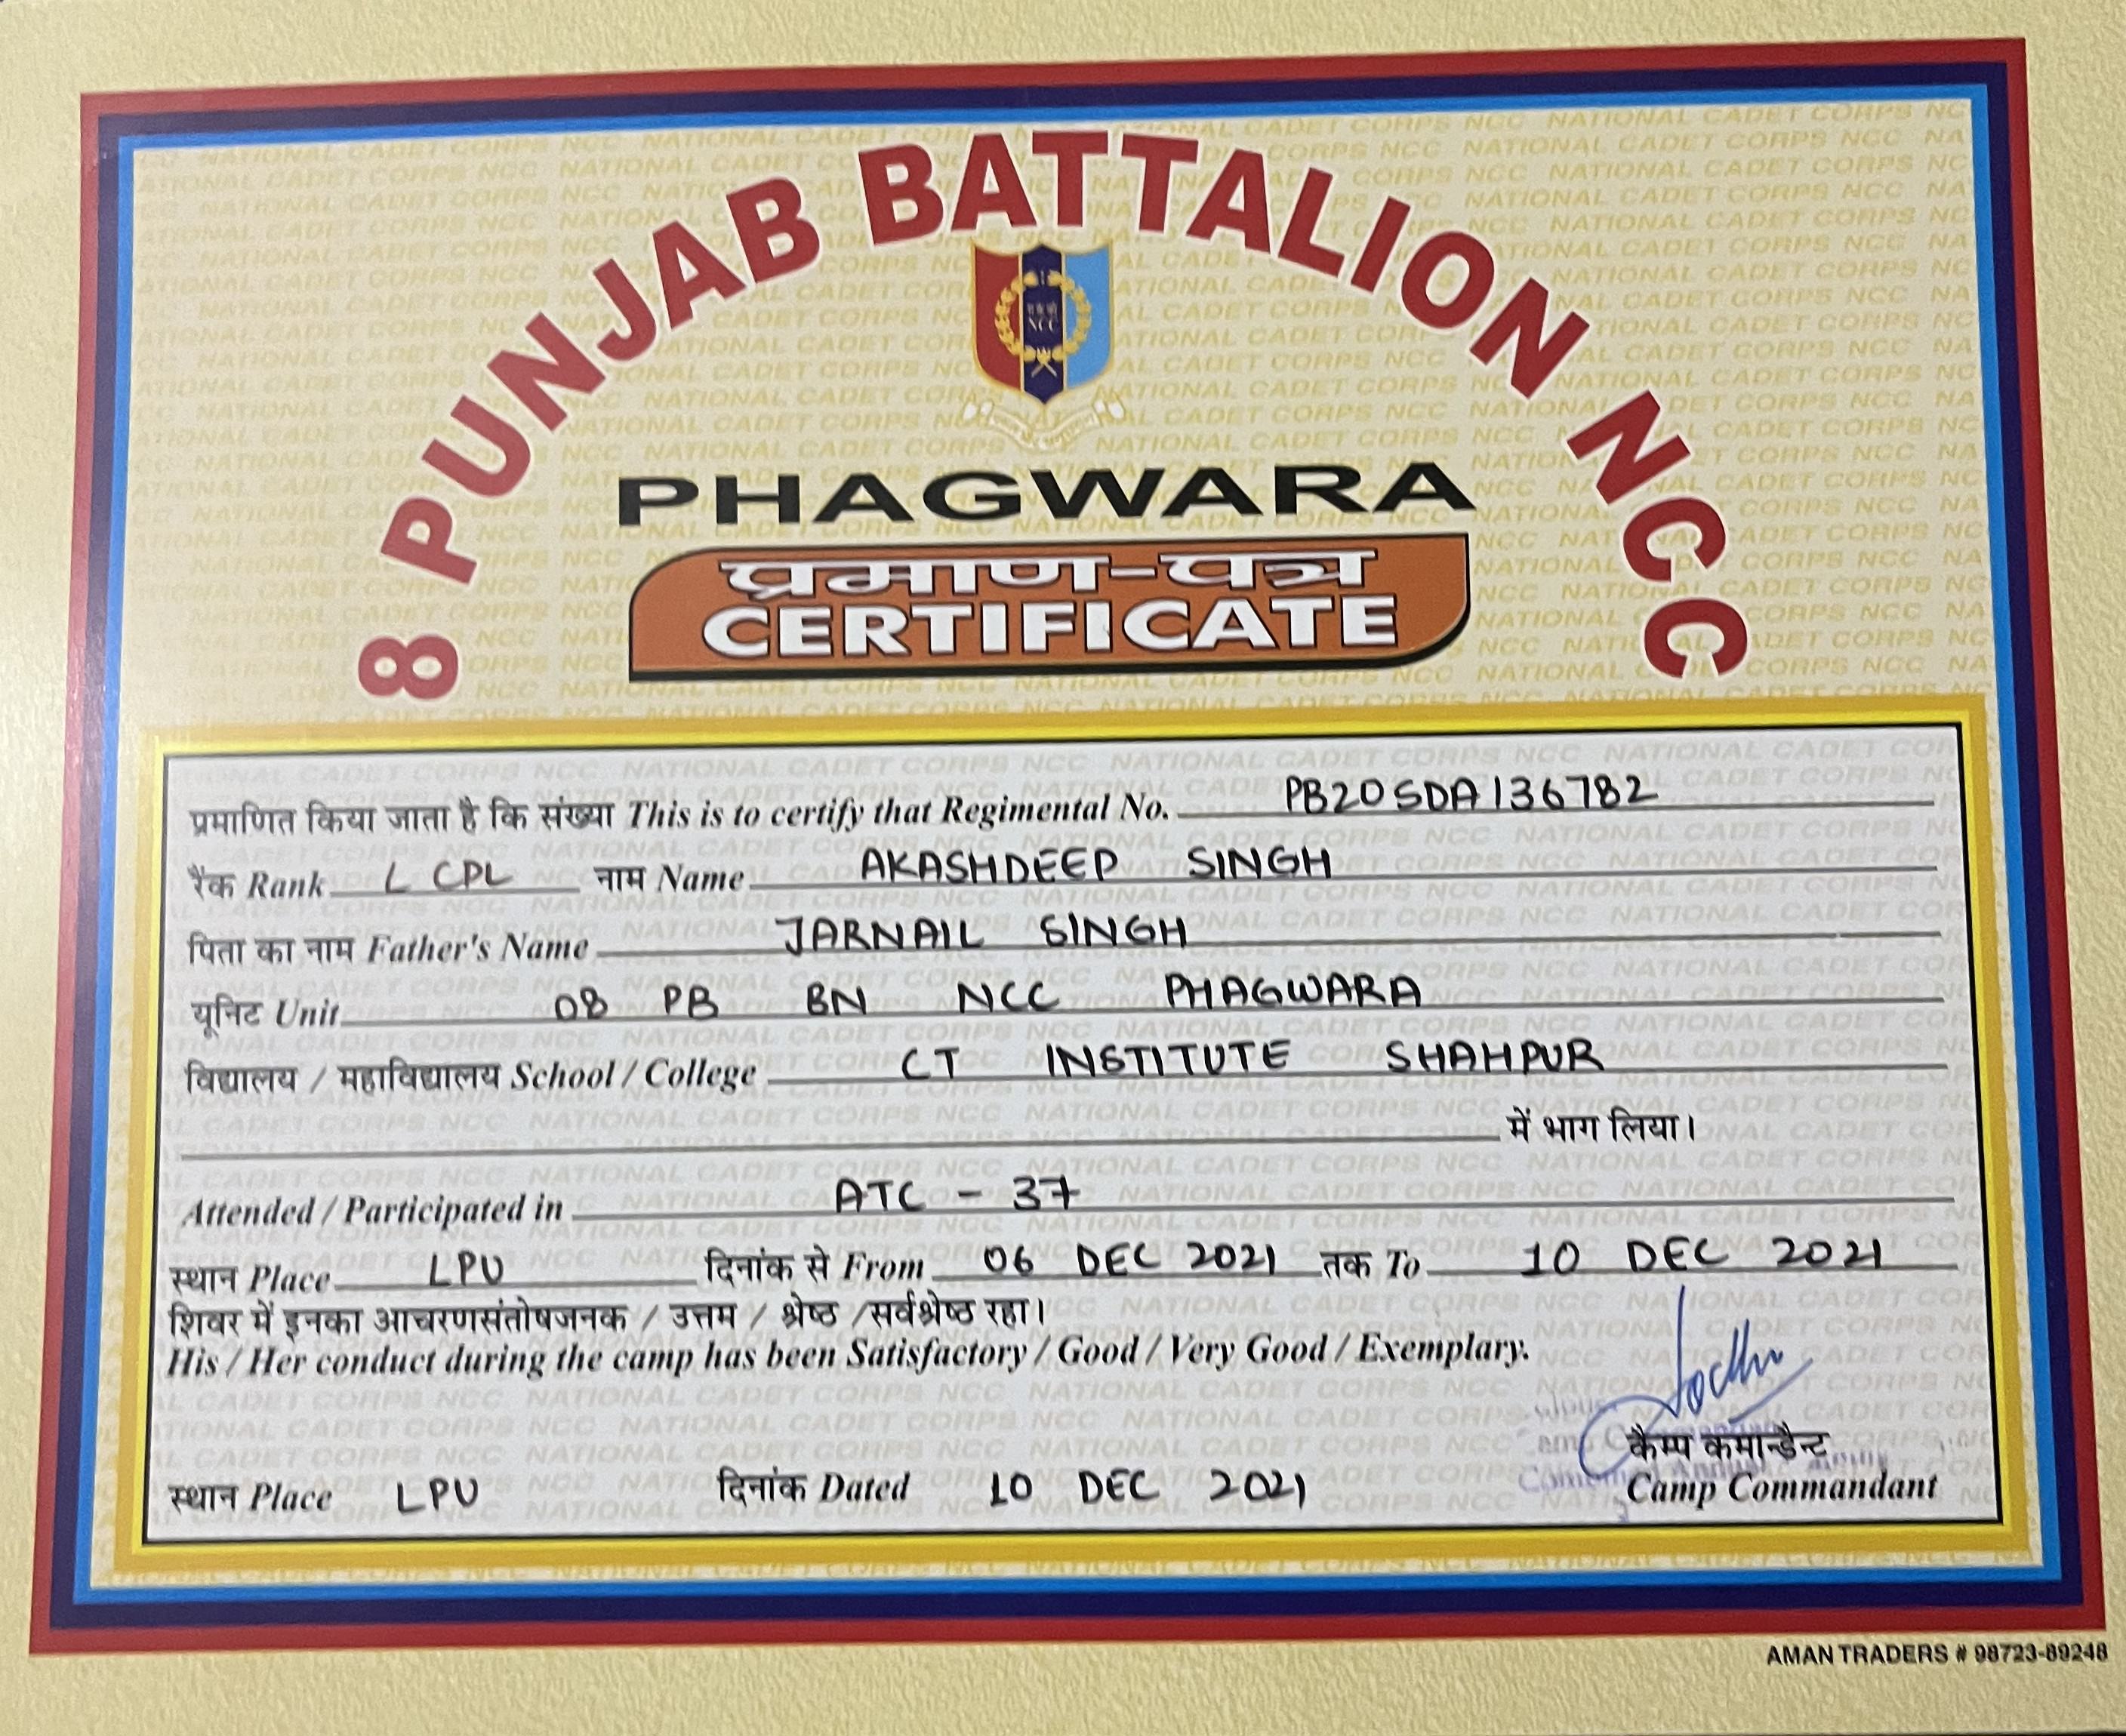 8 PUNJAB BATTALION NCC
NCC
PHAGWARA
प्रमाण-पत्र
CERTIFICATE
प्रमाणित किया जाता है कि संख्या This is to certify that Regimental No. PB20SDA136782
रैंक Rank L CPL नाम Name AKASHDEEP SINGH
पिता का नाम Father's Name JARNAIL SINGH
यूनिट Unit 08 PB BN NCC PHAGWARA
विद्यालय / महाविद्यालय School / College CT INSTITUTE SHAHPUR
में भाग लिया।
Attended / Participated in ATC - 37
स्थान Place LPU दिनांक से From 06 DEC 2021 तक To 10 DEC 2021
शिवर में इनका आचरणसंतोषजनक / उत्तम / श्रेष्ठ /सर्वश्रेष्ठ रहा।
His / Her conduct during the camp has been Satisfactory / Good / Very Good / Exemplary.
कैम्प कमान्डैन्ट
स्थान Place LPU दिनांक Dated 10 DEC 2021 Camp Commandant
AMAN TRADERS # 98723-89248